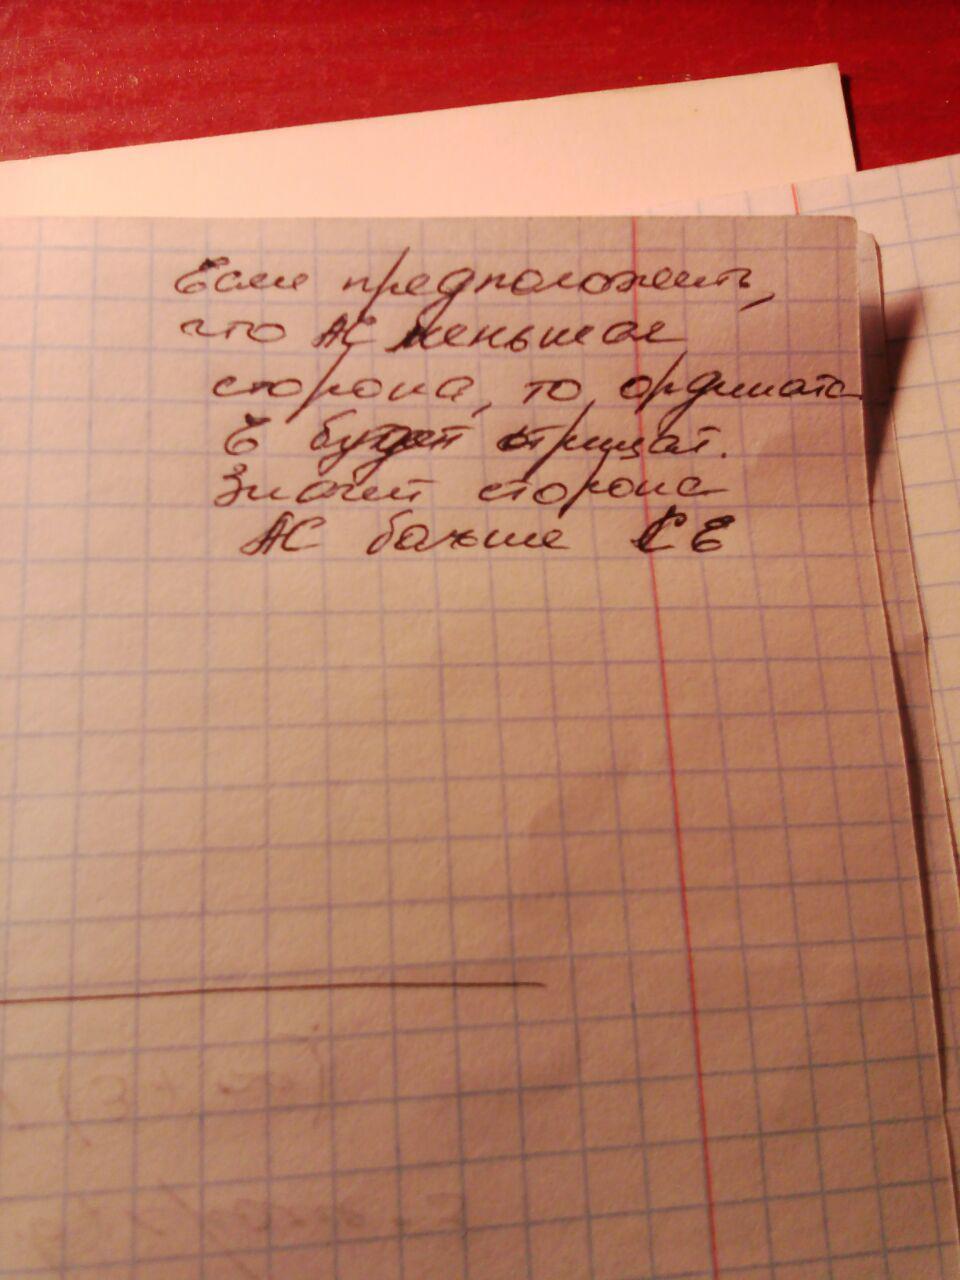 Если предположить,
что AC меньшая
сторона, то ордината
E будет отрицат.
Значит сторона
AC больше CE